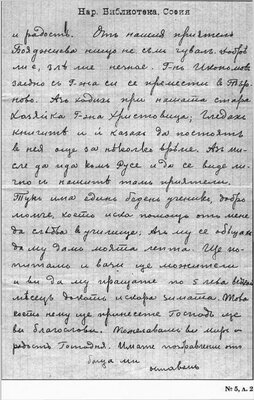 Нар. Библиотека, София
и радость. Отъ нашия приятель
Бояджиева нищо не съм чувалъ. Добрѣ
ли е, злѣ ли не зная. Г-нъ Икономовъ
заедно с Г-жа си се премести в Тър-
ново. Азъ ходихъ при нашата стара
хазяйка Г-жа Христовица; гледахъ
книгитѣ и ѝ казахъ да постоятъ
в нея още за нѣколко врѣме. Азъ ми-
сля да ида към Русе и да се видя
с нашитѣ тамъ приятели.
Тукъ има единъ бѣденъ ученикъ, добро
момче, което иска помощь отъ мене
да слѣдва в училище. Азъ му се обѣщахъ
да му дамъ моята лепта. Ще по-
питамъ и васъ ще можете ли
и ви да му пращате по 5 лева всѣки
мѣсецъ докато изкара зимата. Това
което нему ще принесете Господь ще
ви благослови. Пожелавамъ ви миръ и
радость Господня. Имате поздравление отъ
баща ми
оставамъ
№ 5, л. 2